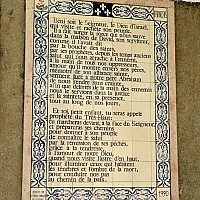 Béni soit le Seigneur, le Dieu d'Israël,
qui visite et rachète son peuple.
Il a fait surgir la force qui nous sauve
dans la maison de David, son serviteur,
comme il l'avait dit
par la bouche des saints,
par ses prophètes, depuis les temps anciens
salut qui nous arrache à l'ennemi,
à la main de tous nos oppresseurs,
amour qu'il montre envers nos pères,
mémoire de son alliance sainte,
serment juré à notre père Abraham
de nous rendre sans crainte,
afin que délivrés de la main des ennemis
nous le servions dans la justice
et la sainteté, en sa présence,
tout au long de nos jours.
Et toi, petit enfant, tu seras appelé
prophète du Très-Haut:
tu marcheras devant, à la face du Seigneur,
et tu prépareras ses chemins
pour donner à son peuple
de connaître le salut
par la rémission de ses péchés,
grâce à la tendresse,
à l'amour de notre Dieu,
quand nous visite l'astre d'en haut,
pour illuminer ceux qui habitent
les ténèbres et l'ombre de la mort,
pour conduire nos pas
au chemin de la paix.